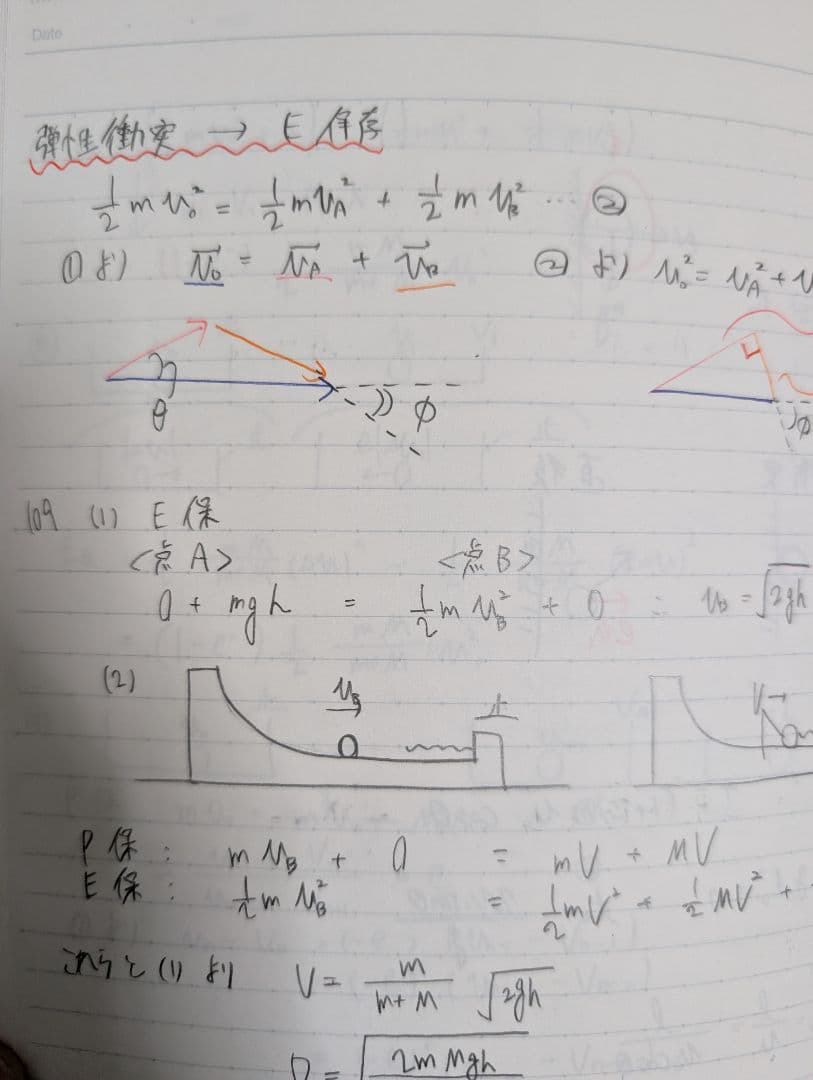 Date
弾性衝突 → E 保存
1/2 m v₀² = 1/2 m v_A² + 1/2 m v_B² … ②
①より v₀→ = v_A→ + v_B→ ②より v₀² = v_A² + v
θ φ φ
109 (1) E保
<点A> <点B>
0 + mgh = 1/2 m v_B² + 0 ∴ v_B = √2gh
(2) v_B 止 V→
P保: m v_B + 0 = mV + MV
E保: 1/2 m v_B² = 1/2 mV² + 1/2 MV² +
これらと(1)より V = m/(m+M) √2gh
= √2mMgh